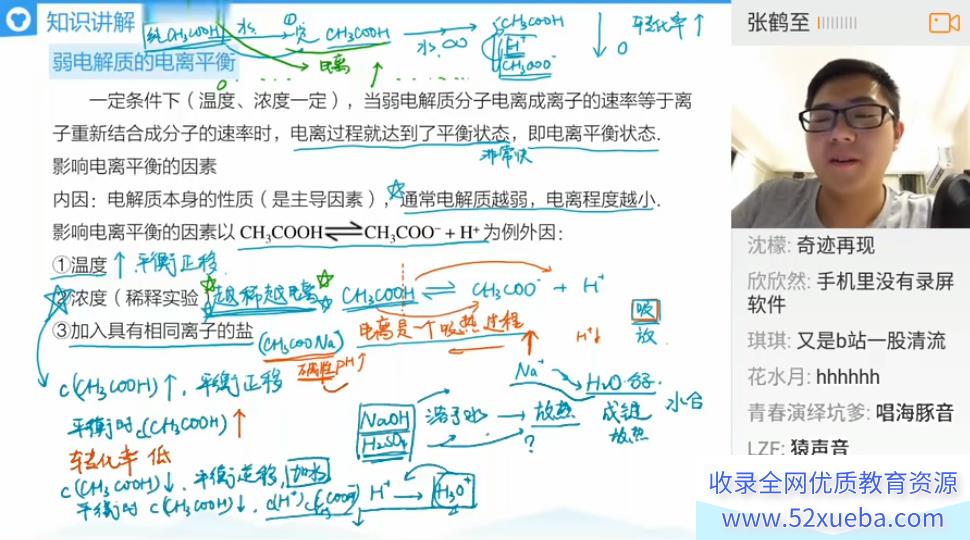 知识讲解
纯CH₃COOH 水 ① CH₃COOH 水 ∞ CH₃COOH
H⁺
CH₃COO⁻
0
转化率↑
电离 ↑
弱电解质的电离平衡
0
一定条件下（温度、浓度一定），当弱电解质分子电离成离子的速率等于离
子重新结合成分子的速率时，电离过程就达到了平衡状态，即电离平衡状态.
非常快
影响电离平衡的因素
内因：电解质本身的性质（是主导因素），通常电解质越弱，电离程度越小.
影响电离平衡的因素以 CH₃COOH⇌CH₃COO⁻ + H⁺ 为例外因：
①温度 ↑ 平衡正移.
②浓度（稀释实验）越稀越电离 CH₃COOH ⇌ CH₃COO⁻ + H⁺
吸
放
③加入具有相同离子的盐 (CH₃COONa) 电离是一个吸热过程 ↑ H⁺↓
碱性 pH↑
Na⁺ → H₂O分子. 水合
成键
放热
c(CH₃COOH)↑, 平衡正移
NaOH 溶于水 → 放热
H₂SO₄ ?
平衡时c(CH₃COOH)↑
转化率 低
c(CH₃COOH)↓. 平衡逆移, 加水
平衡时 c(CH₃COOH)↓. c(H⁺)
H⁺ → H₃O⁺
张鹤至
沈檬: 奇迹再现
欣欣然: 手机里没有录屏
软件
琪琪: 又是b站一股清流
花水月: hhhhhh
青春演绎坑爹: 唱海豚音
LZF: 猿声音
收录全网优质教育资源
www.52xueba.com